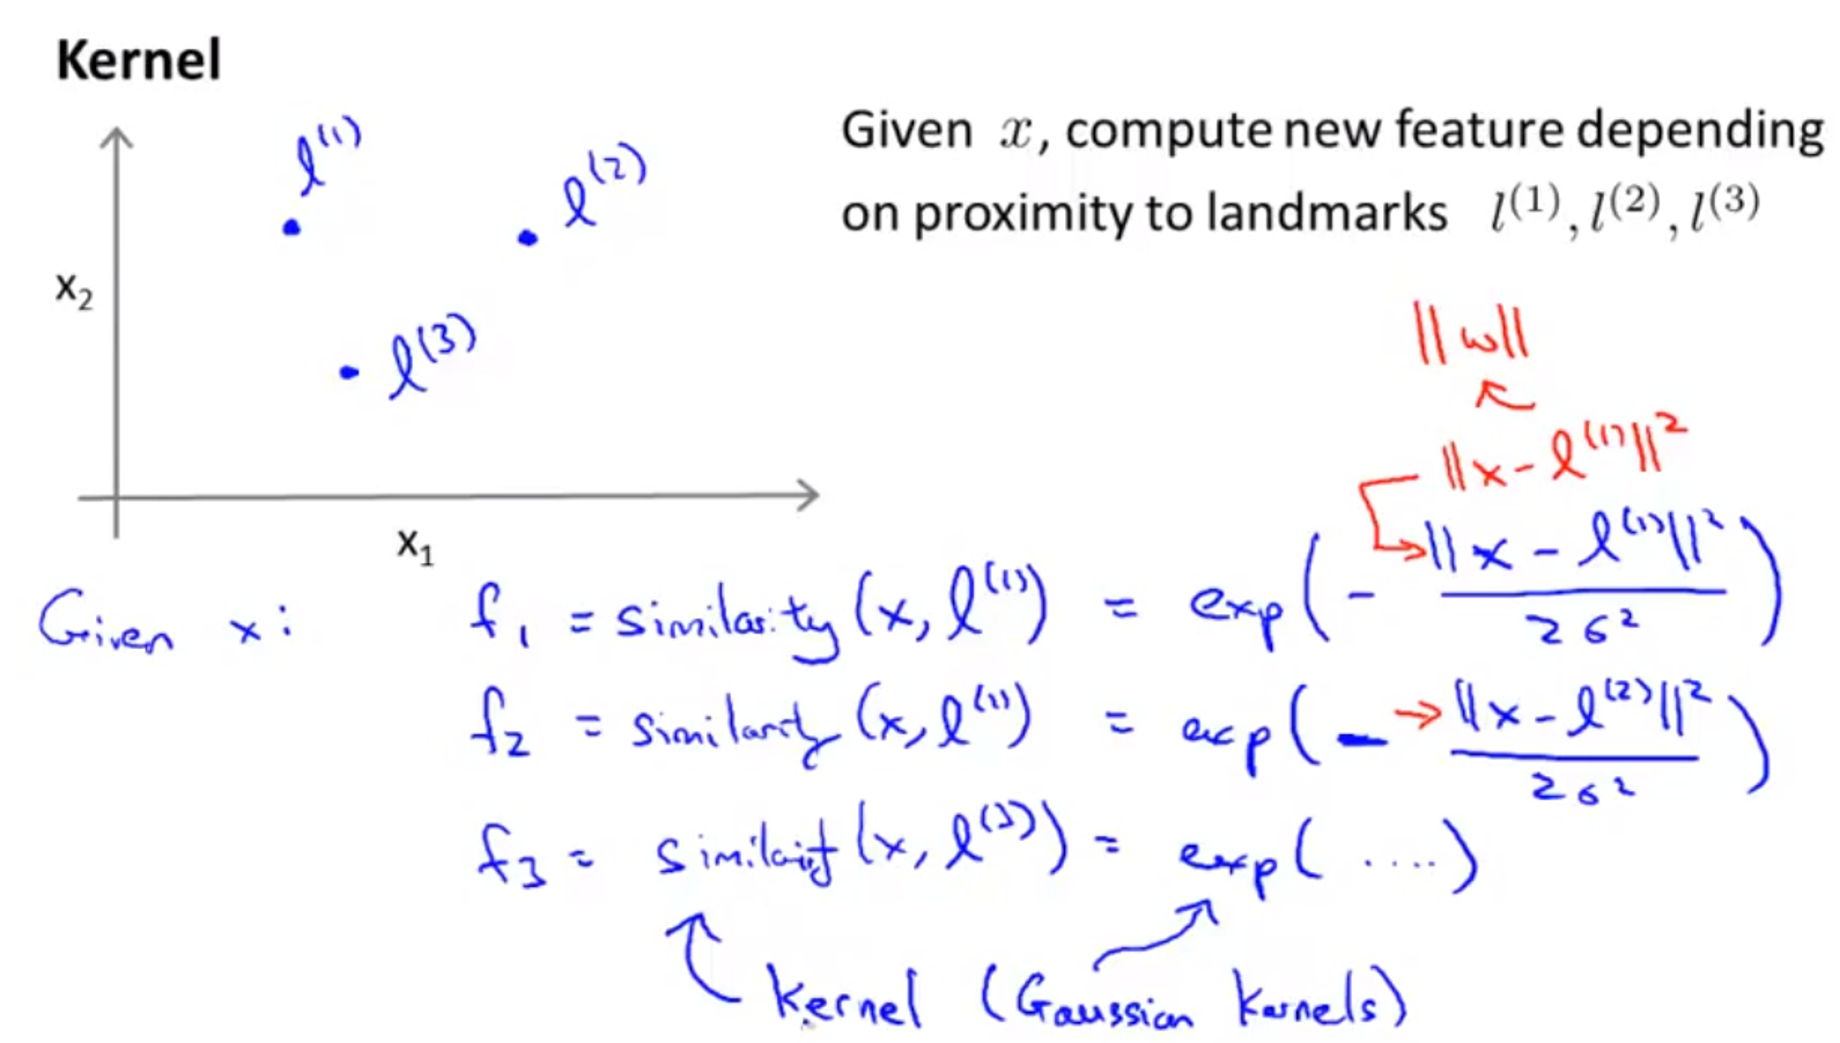 Kernel
l^(1)
l^(2)
x₂
l^(3)
x₁
Given x, compute new feature depending
on proximity to landmarks l^(1), l^(2), l^(3)
||w||
||x - l^(1)||²
Given x: f₁ = similarity (x, l^(1)) = exp(- ||x - l^(1)||² / 2σ²)
f₂ = similarity (x, l^(1)) = exp(- ||x - l^(2)||² / 2σ²)
f₃ = similarity (x, l^(3)) = exp(....)
Kernel (Gaussian Kernels)